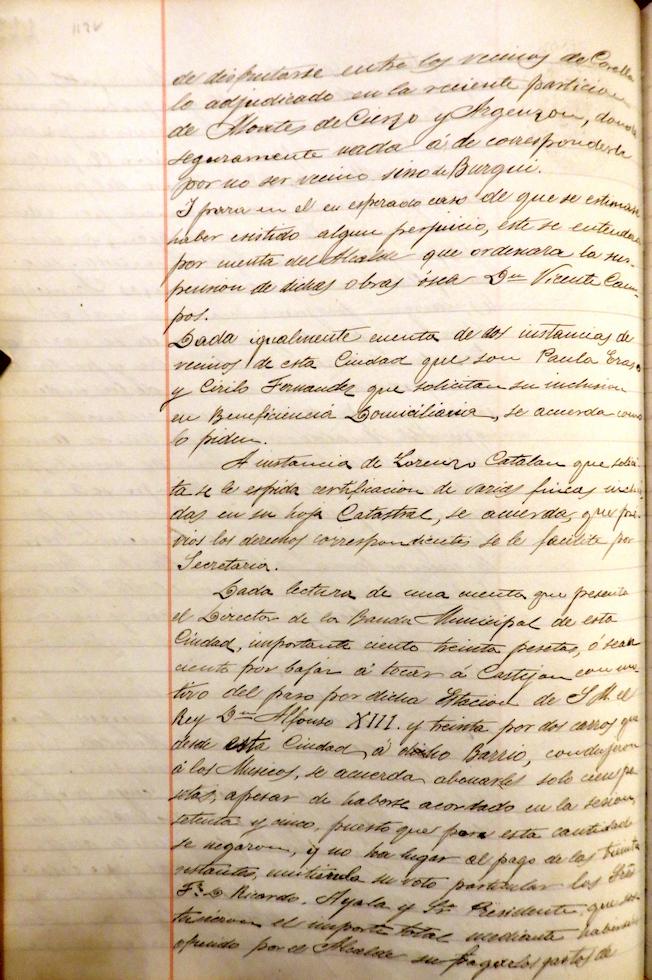 de disfrutarse entre los vecinos de Corella
lo adjudicado en la reciente particion
de Montes de Cierzo y Argenzon, donde
seguramente nada á de corresponderle
por no ser vecino sino de Burgui.
Y para en el en esperado caso de que se estimase
haber existido algun perjuicio, este se entendera
por cuenta del Alcalde que ordenara la sus-
pension de dichas obras ósea Dn Vicente Cam-
pos.
Dada igualmente cuenta de dos instancias de
vecinos de esta Ciudad que son Paula Eraso
y Cirilo Fernandez que solicitan su inclusion
en Beneficiencia Domiciliaria, se acuerda como
lo piden.
A instancia de Lorenzo Catalan que solici-
ta se le espida certificacion de varias fincas inclui-
das en su hoja Catastral, se acuerda, que pre-
vios los derechos correspondientes se le facilite por
Secretaria.
Dada lectura de una cuenta que presenta
el Director de la Banda Municipal de esta
Ciudad, importante ciento treinta pesetas, ó sean
ciento por bajar á tocar á Castejon con mo-
tivo del paso por dicha Estacion de S. M. el
Rey Dn Alfonso XIII. y treinta por dos carros que
desde esta Ciudad á dicho Barrio, condujeron
á los Musicos, se acuerda abonarles solo cien pe-
setas, apesar de haberse acordado en la sesion,
setenta y cinco, puesto que para esta cantidad
se negaron, y no ha lugar al pago de las treinta
restantes, su voto particular los Sres
D Ricardo Ayala y Sr Presidente, que sos-
tuvieron el importe total mediante haberse
ofrecido por el Alcalde su pago los gastos de